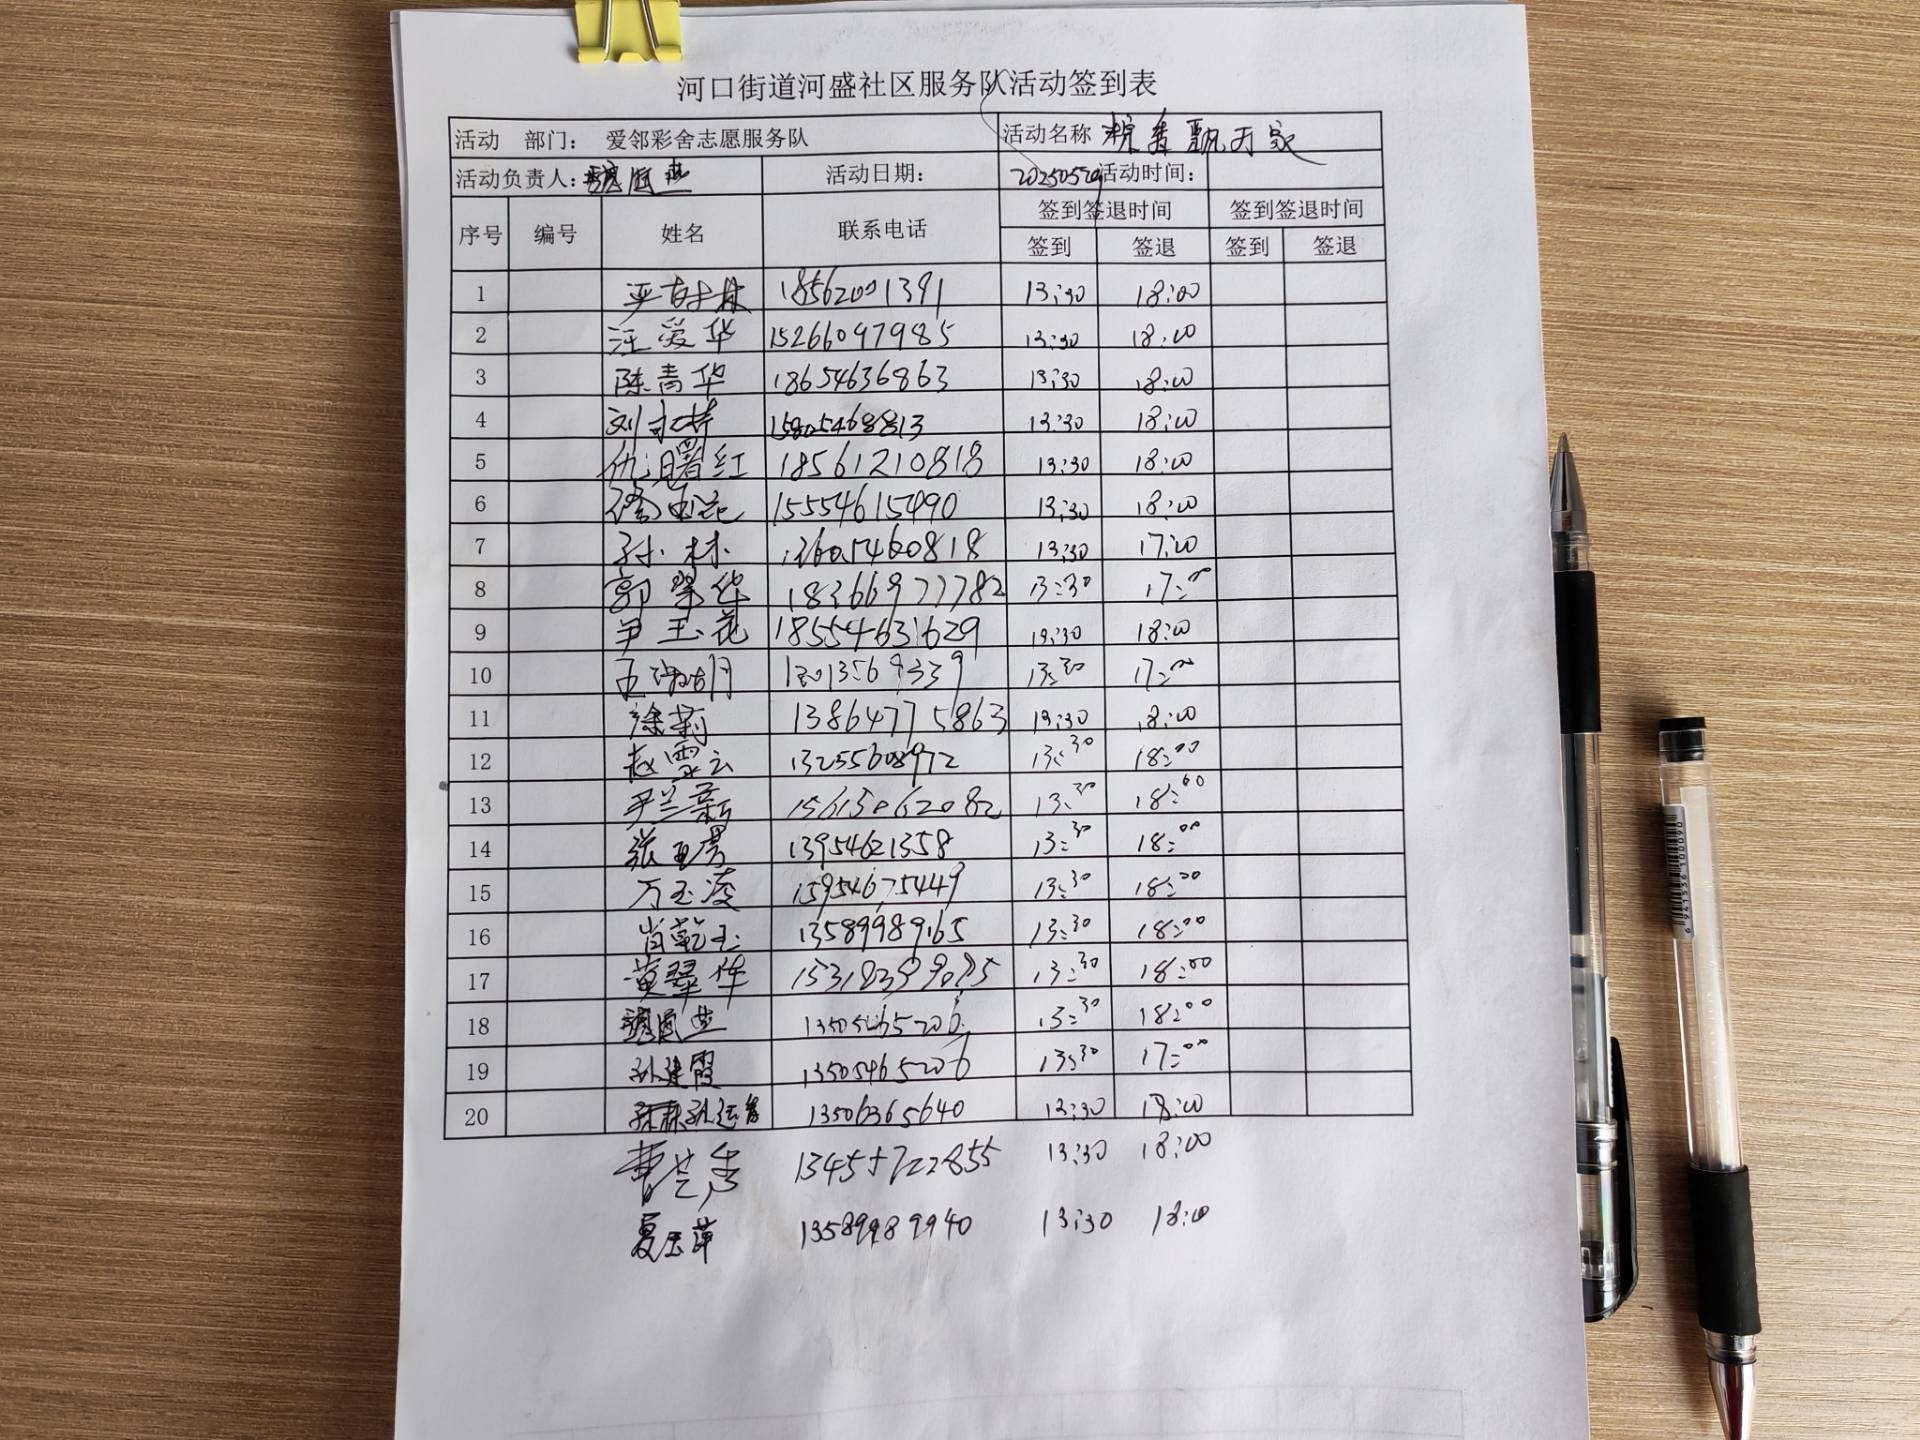 河口街道河盛社区服务队活动签到表
活动 部门: 爱邻彩舍志愿服务队 活动名称 粽香飘万家
活动负责人: 活动日期: 20250529 活动时间:
序号 编号 姓名 联系电话 签到签退时间 签到签退时间
签到 签退 签到 签退
1 18562001391 13:30 18:00
2 汪爱华 15266097985 13:30 18:00
3 陈青华 18654636863 13:30 18:00
4 刘 15805468813 13:30 18:00
5 仇曙红 18561210818 13:30 18:00
6 15554615490 13:30 18:00
7 孙林 13605460818 13:30 17:00
8 郭翠华 18366977782 13:30 17:00
9 尹玉花 18554631629 13:30 18:00
10 13:30 17:00
11 徐莉 13864775863 13:30 18:00
12 赵雪云 13255608972 13:30 18:00
13 尹兰新 15615062082 13:30 18:00
14 张 13954621358 13:30 18:00
15 万玉凌 15954675449 13:30 18:00
16 肖乾玉 13589989165 13:30 18:00
17 黄翠华 13:30 18:00
18 13505465206 13:30 18:00
19 孙建霞 13505465206 13:30 17:00
20 13506365640 13:30 18:00
曹兰 13455722855 13:30 18:00
夏玉萍 13589989940 13:30 18:00
6 941536 100090